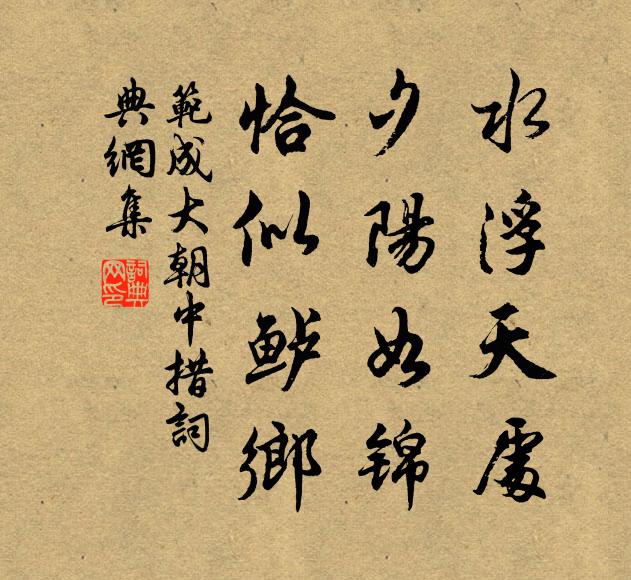 水浮天處
夕陽如锦
恰似鲈鄉
範成大朝中措詞
典網集
詞典网印